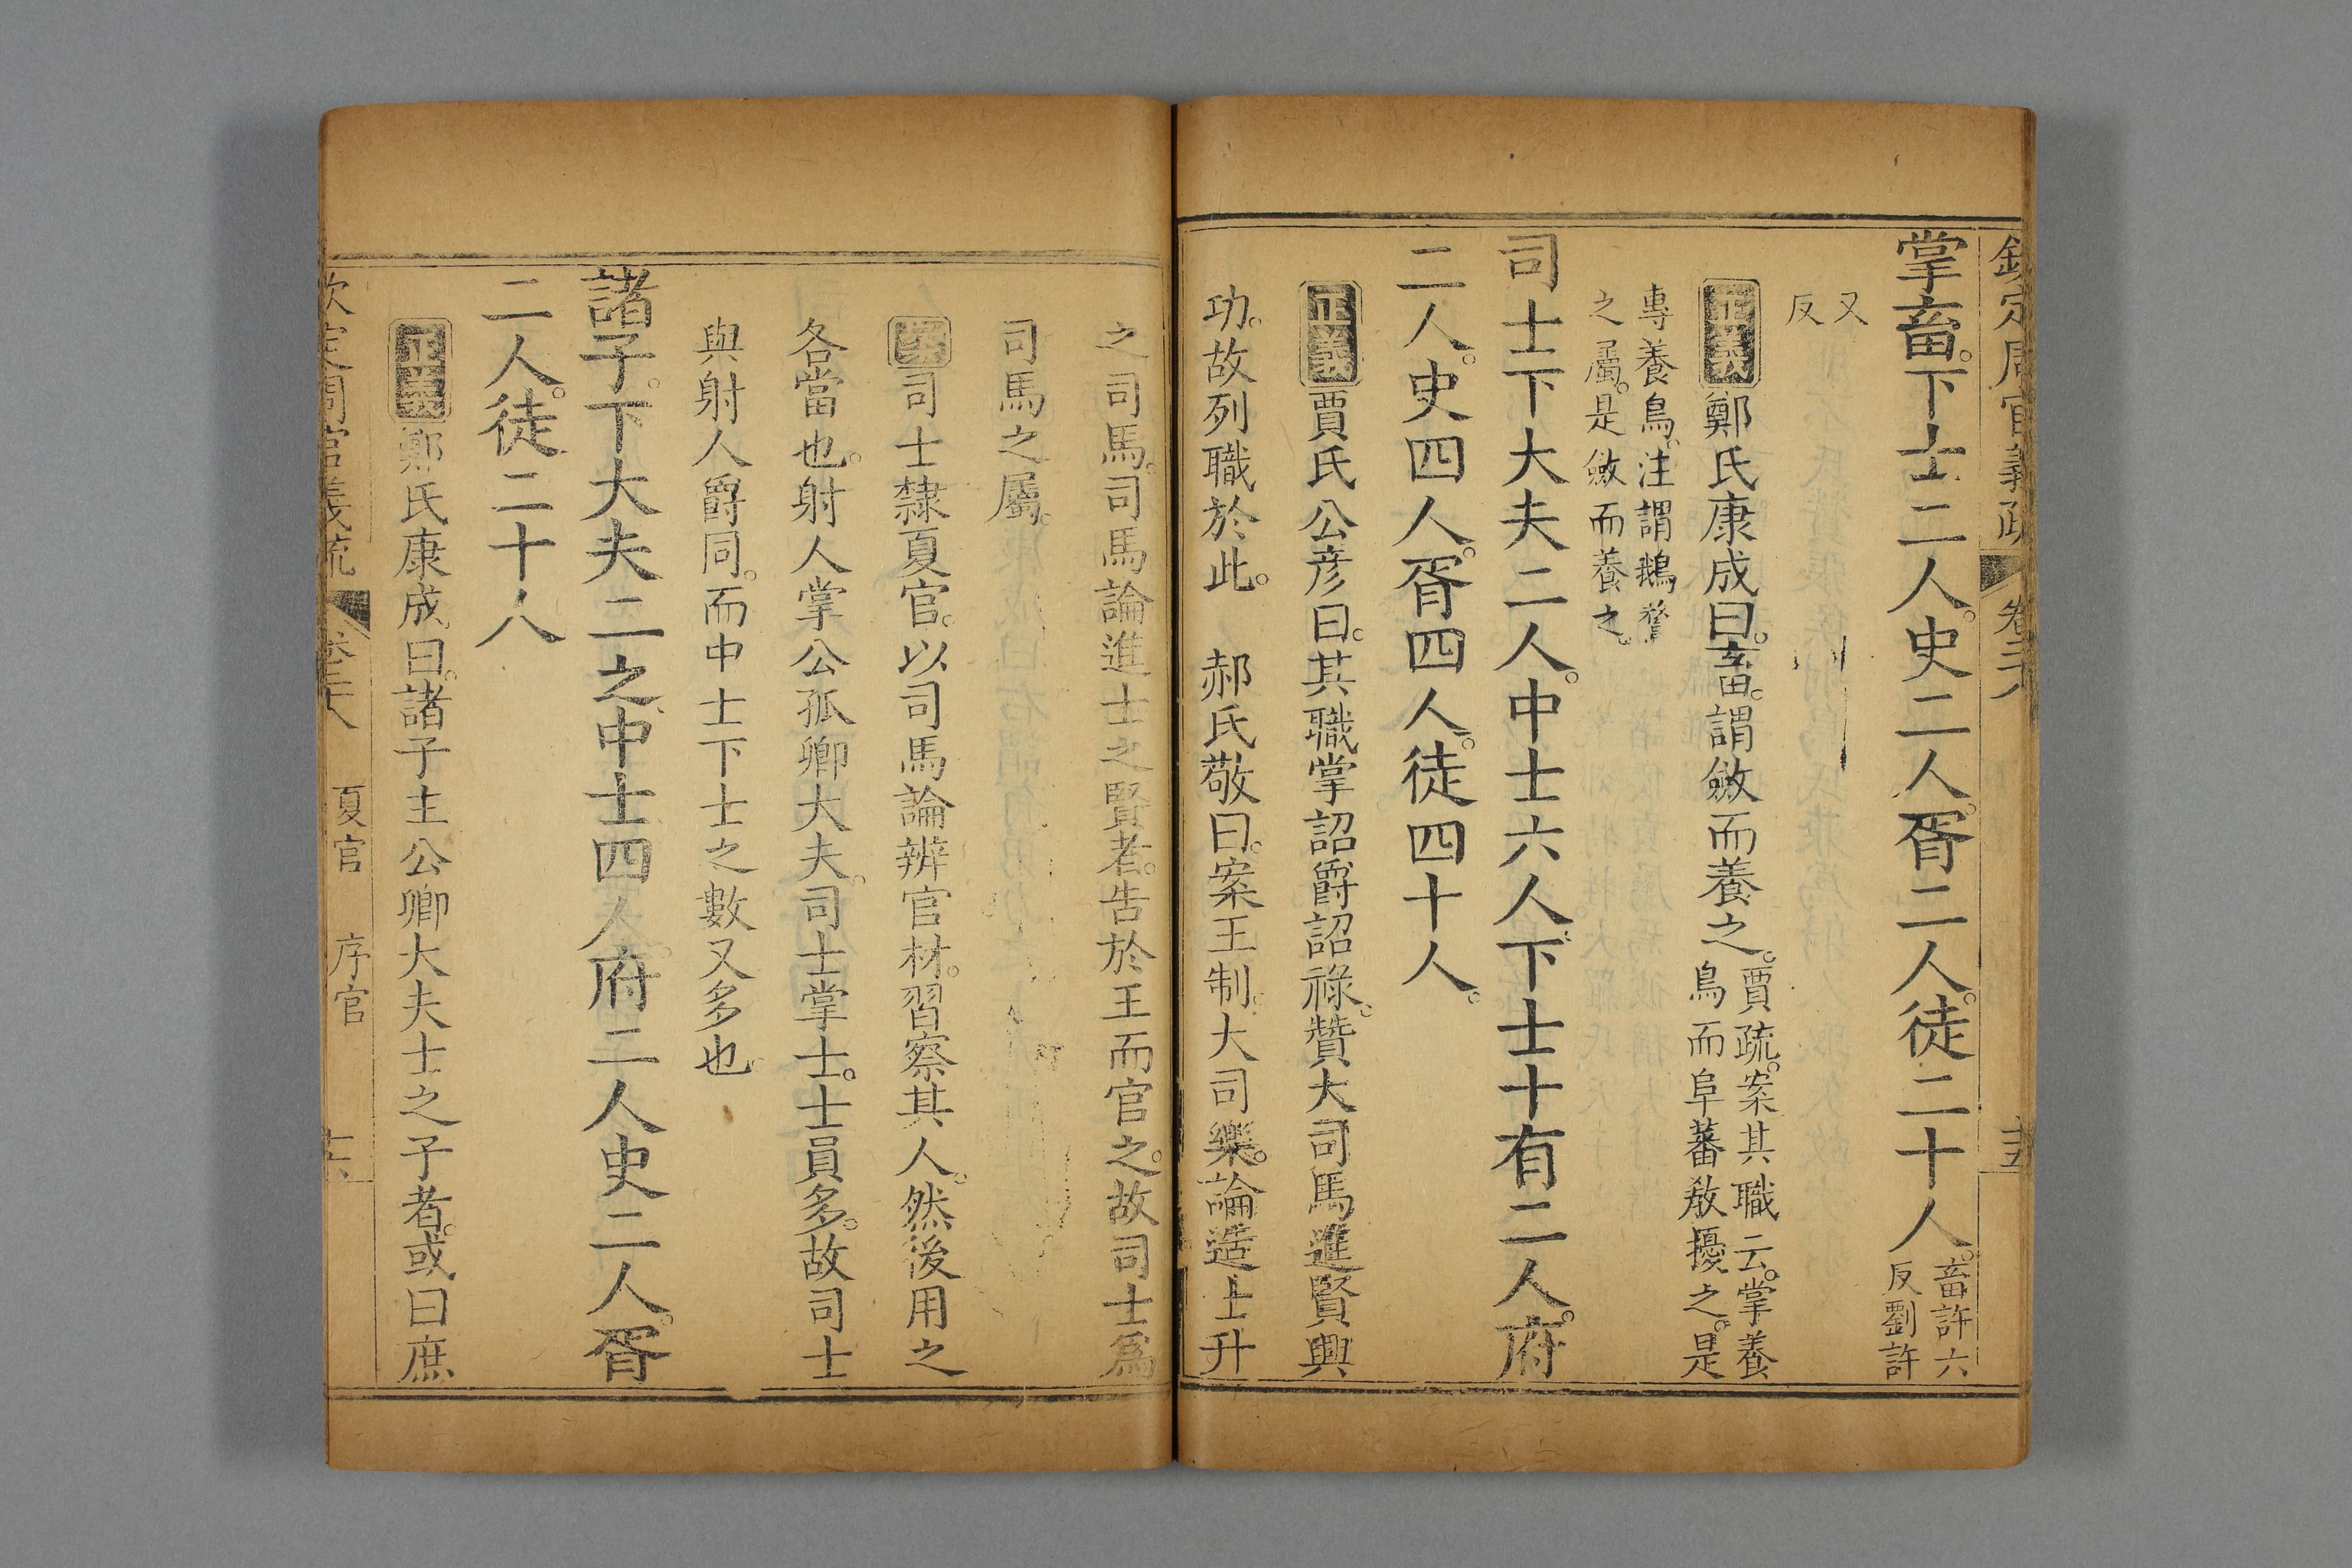 欽定周官義疏 卷二八 十五
掌畜。下士二人。史二人。胥二人。徒二十人。畜許六
反劉許
又
反
正義鄭氏康成曰。畜。謂斂而養之。賈疏。案其職云。掌養
鳥而阜蕃敎擾之。是
專養鳥。注謂鵝鶩
之屬。是斂而養之。
司士下大夫二人。中士六人。下士十有二人。府
二人。史四人。胥四人。徒四十人。
正義賈氏公彦曰。其職掌詔爵詔祿。贊大司馬進賢興
功。故列職於此。 郝氏敬曰。案王制。大司樂。論造士升
之司馬。司馬論進士之賢者。告於王而官之。故司士爲
司馬之屬。
司士隸夏官。以司馬論辨官材。習察其人。然後用之
各當也。射人掌公孤卿大夫。司士掌士。士員多。故司士
與射人爵同。而中士下士之數又多也。
諸子。下大夫二之。中士四人。府二人史二人。胥
二人。徒二十八
正義鄭氏康成曰。諸子主公卿大夫士之子者。或曰庶
欽定周官義疏 卷二八 夏官 序官 十六